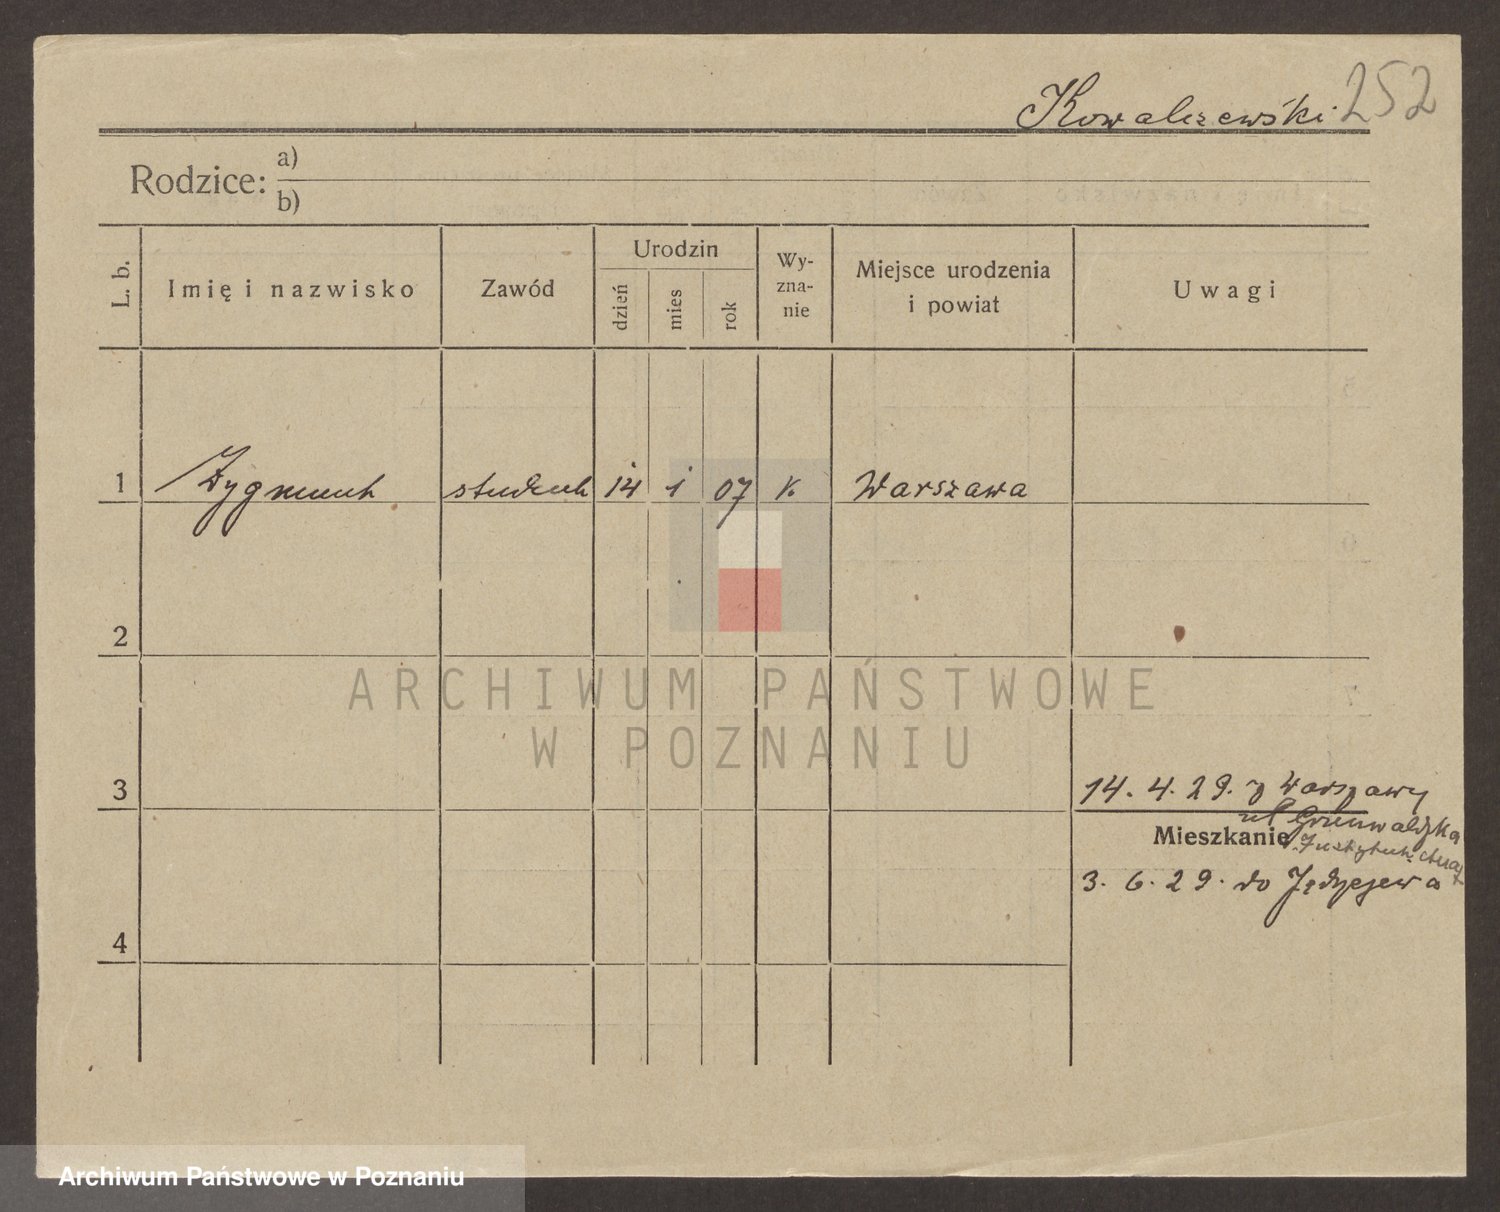 Kowalczewski 252
Rodzice: a)
b)
L. b. Imię i nazwisko Zawód Urodzin dzień mies rok Wy-zna-nie Miejsce urodzenia i powiat Uwagi
1 Zygmunt student 14 1 07 k. Warszawa
2
3 14. 4. 29. z Warszawy
ul Grunwaldzka
Mieszkanie
3. 6. 29. do Jędrzejewa
4
ARCHIWUM PAŃSTWOWE
W POZNANIU
Archiwum Państwowe w Poznaniu